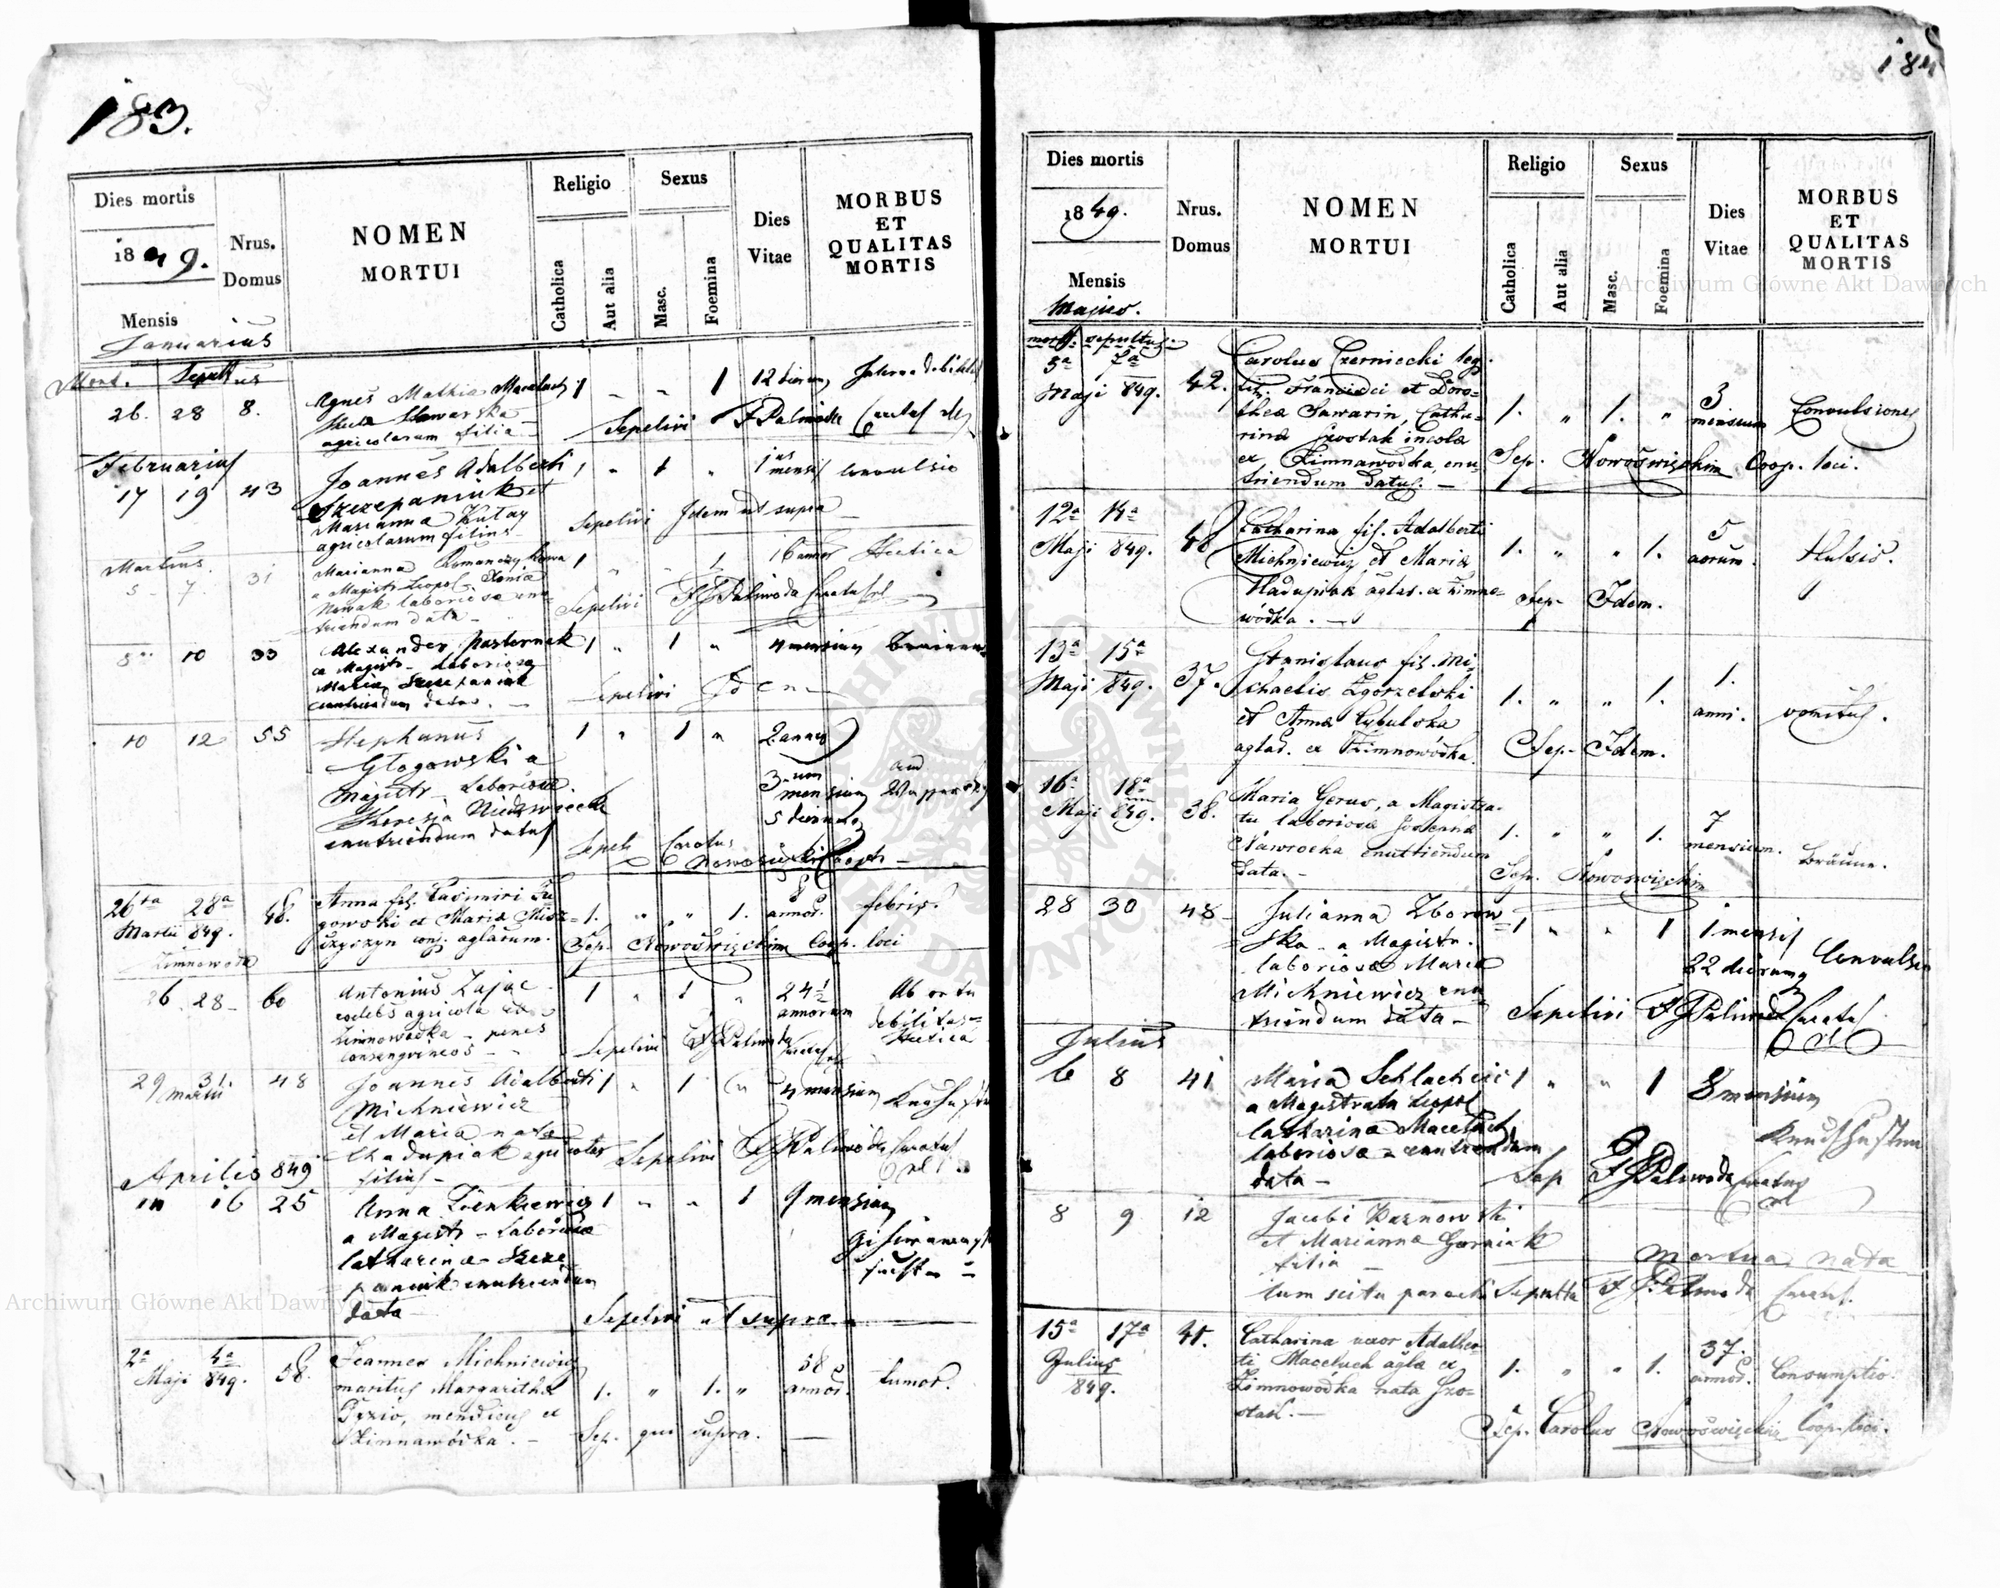 183.
Dies mortis
1849.
Mensis
Januarius
Nrus.
Domus
NOMEN
MORTUI
Religio
Catholica
Aut alia
Sexus
Masc.
Foemina
Dies
Vitae
MORBUS
ET
QUALITAS
MORTIS
Mort. Sepultus
26. 28 8.
Agnes Mathia Maceluch
agricolarum filia
1 " " 1
12 dierum
Sepelivi F Palivoda Curatus
Februarius
17 19 43
Joannes Adalberti
Szczepaniuk et
Marianna
agricolarum filius
1 " 1 "
1 mensis
Convulsio
Sepelivi Idem ut supra
Martius
5 - 7. 31
Marianna
a Magistr. Leopol.
Nowak laboriosa enu-
triendum data
1 " " 1
16 annor
Hectica
Sepelivi F Palivoda Curatus
8 10 33
Alexander Pasternak
a Magistr. laboriosa
Maria Szczepaniuk
enutriendum datus
1 " 1 "
4 mensium
Sepelivi Idem
10 12 55
Stephanus
Glogowski a
Magistr. laboriosa
enutriendum datus
1 " 1 "
2 annor
3 mensium
5 dierum
Sepel. Carolus
Coop.
26ta 28a
Martii 849.
Zimnowoda
48.
Anna fil. Casimiri
et Maria
conj. aglarum.
1. " " 1.
8 annor.
febris.
Sep. Nowoświęchim Coop. loci
26. 28 - 60
Antonius Zając
caelebs agricola ex
Zimnowodka - penes
consangvineos
1 " 1 "
24 1/2
annorum
debilitas
Hectica
Sepelivi F Palivoda
29 31 48
Martii
Joannes Adalberti
Michniewicz
et Maria nata
Chadupiak agricolar
filius -
1 " 1 "
4 mensium
Sepelivi F Palivoda Curatus
Aprilis 849
14 16 25
Anna Zienkiewicz
a Magistr - laboriosa
Catharina - Szcze-
paniuk enutriendum
data
1 " " 1
9 mensium
Sepelivi ut supra
2a 4a
Maji 849. 58.
Joannes Michniewicz
maritus Margaritha
Pyzio, mendicus ex
Zimnawódka. -
1. " 1. "
58
annor.
tumor.
Sep. qui supra.
184
Dies mortis
1849.
Mensis
Majus.
Nrus.
Domus
NOMEN
MORTUI
Religio
Catholica
Aut alia
Sexus
Masc.
Foemina
Dies
Vitae
MORBUS
ET
QUALITAS
MORTIS
mort. sepultus.
5a 7a
Maji 849. 42.
Carolus Czerniecki leg.
fil. Francisci et Doro-
thea Sawarin, Catha-
rina Szostak incola
ex Zimnawodka, enu-
triendum datus. -
1. " 1. "
3
mensium
Convulsiones
Sep. Nowoświęchim Coop. loci.
12a 14a
Maji 849. 48
Catharina fil. Adalberti
Michniewicz et Maria
Hadupiak aglar. ex Zimno-
wódka. -
1. " " 1.
5
aorum.
tussis.
Sep. Idem.
13a 15a
Maji 849. 37.
Stanislaus fil. Mi-
chaelis Zgorzelski
et Anna Cybulska
aglar. ex Zimnowódka.
1. " " 1.
1.
anni.
vomitus.
Sep. Idem.
16a 18a
Maji 849. 38.
Maria Gerus, a Magistra-
tu laboriosa Joanna
Nawrocka enutriendum
data. -
1. " " 1.
7
mensium.
Bräune.
Sep. Nowoświęchim
28 30 48
Julianna Zborow-
ska - a Magistr.
laboriosa Maria
Michniewicz enu-
triendum data -
1 " " 1
1 mensis
22 dierum
Convulsio
Sepelivi F Palivoda Curatus
Julius
6 8 41
Maria Schlachcic
a Magistratu Leopol
Catharina Maceluch
laboriosa - enutriendum
data -
1 " " 1
8 mensium
Keuchhusten
Sep F Palivoda Curatus
8 9 12
Jacobi Baznowski
et Marianna Gorniak
filia -
mortua nata
cum scitu parochi Sepulta F Palivoda Curat.
15a 17a
Julius
849.
41.
Catharina uxor Adalber-
ti Maceluch agla ex
Zimnowódka nata Szo-
stak. -
1. " " 1.
37.
annor.
Consumptio.
Sep. Carolus Nowoświęchim Coop. loci.
Archiwum Główne Akt Dawnych
Archiwum Główne Akt Dawnych
ARCHIWUM GŁÓWNE AKT DAWNYCH